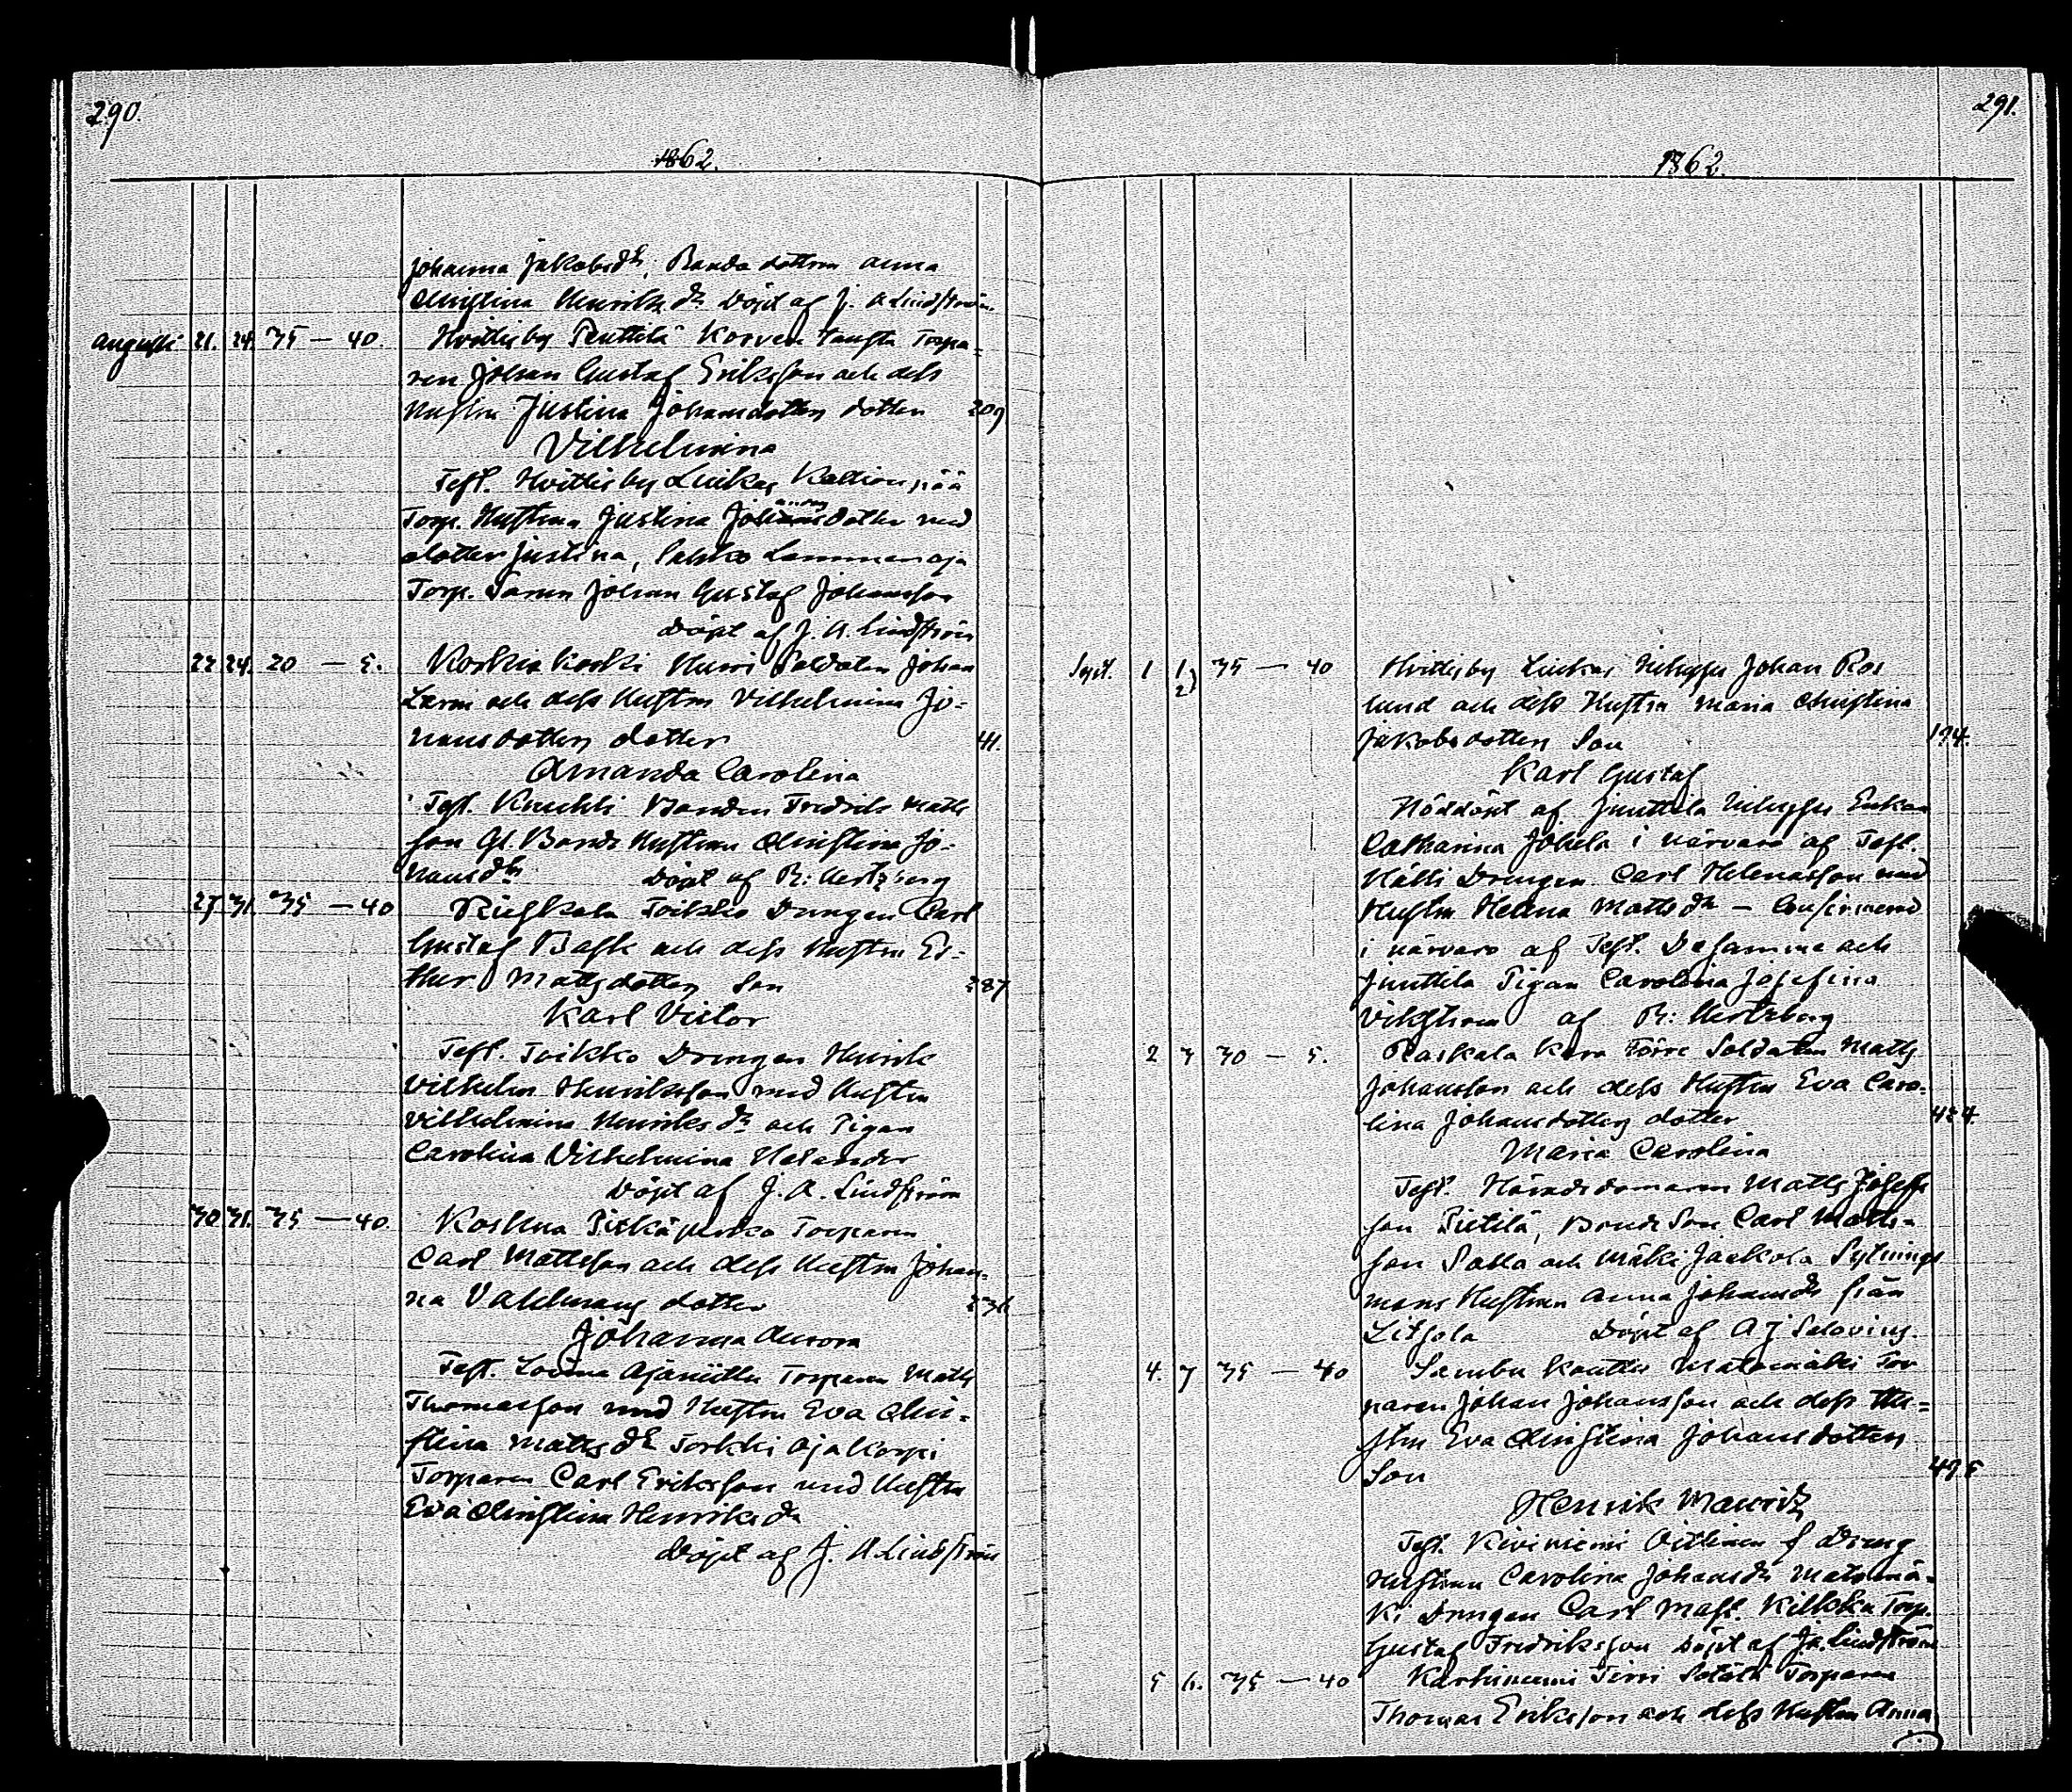 290.
1862.
Johanna Jakobsdr, Bondadottren Anna
Christina Henriksdr Döpt af J. A Lindström
Augusti 21. 24. 35 — 40. Hvittisby Penttilä Korven Torpa=
ren Johan Gustaf Eriksson och dess
Hustru Justina Johansdotters dotter 209
Vilhelmina
Test. Hvittisby Kallionpää
Torp. Hustrun Justina dotter med
dotter Justina, Lammenoja
Torp. Sonen Johan Gustaf Johansson
Döpt af J. A. Lindström
22 24. 20 — 5. Koskis Koski Soldaten Johan
och dess Hustru Vilhelmina Jo=
hansdotters dotter 41.
Amanda Carolina
Test. Knuhti Bonden Fredrik Matts
son Gl. Bonde Hustrun Christina Jo=
hansdr Döpt af R: Hertzberg
27 31. 35 — 40 Toikko Drengen Carl
Gustaf Bask och dess Hustru Es=
ther Mattsdotters Son 287
Karl Victor
Test. Toikko Drengen Henrik
Vilhelm Henriksson med Hustru
Vilhelmina Henriksdr och Pigan
Carolina Vilhelmina Helander
Döpt af J. A. Lindström
30 31. 35 — 40. Torparen
Carl Mattsson och dess Hustru Johan=
na dotter
Johanna Aurora
Test. Loima Ajaniittu Torparen Matts
Thomasson med Hustru Eva Chri=
stina Mattsdr Torkki Ajakorpi
Torparen Carl Eriksson med Hustru
Eva Christina Henriksdr
Döpt af J. A. Lindström
291.
1862.
Sept. 1 1/2) 35 — 40 Hvittisby Inhyses Johan Ros
lund och dess Hustru Maria Christina
Jakobsdotters Son 194.
Karl Gustaf
Nöddöpt af Junttila Inhyses Enkan
Catharina Johela i närvaro af Test.
Drengen Carl Helenasson med
Hustru Helena Mattsdr — Confirmerad
i närvaro af Test. Desamma och
Junttila Pigan Carolina Josefina
Vikström af R: Hertzberg
2 7 30 — 5. Raskala Törre Soldaten Matts
Johansson och dess Hustru Eva Caro=
lina Johansdotters dotter 424.
Maria Carolina
Test. Häradsdomaren Matts Josefs
son Pietilä, Bonde Son Carl Matts=
son Salla och Mäki Jaakola Sytnings
mans Hustrun Anna Johansdr från
Döpt af A J Salovius.
4. 7 35 — 40 Sambu Kouttu Matomäki Tor
paren Johan Johansson och dess Hu=
stru Eva Christina Johansdotters
Son 495
Henrik Mauritz
Test. Kiviniemi f Dreng
Hustrun Carolina Johansdr Matomä=
ki Drengen Carl Matts. Torp.
Gustaf Fredriksson Döpt af J. A. Lindström
5 6. 35 — 40 Karhiniemi Torparen
Thomas Eriksson och dess Hustru Anna